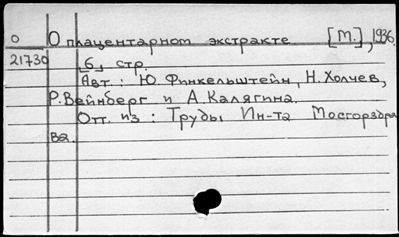 О О плацентарном экстракте [М.], 1936.
21730 [6] стр.
Авт.: Ю. Финкельштейн, Н. Холчев,
Р. Вейнберг и А. Калягина.
Отт. из: Труды Ин-та Мосгорздра
ва.